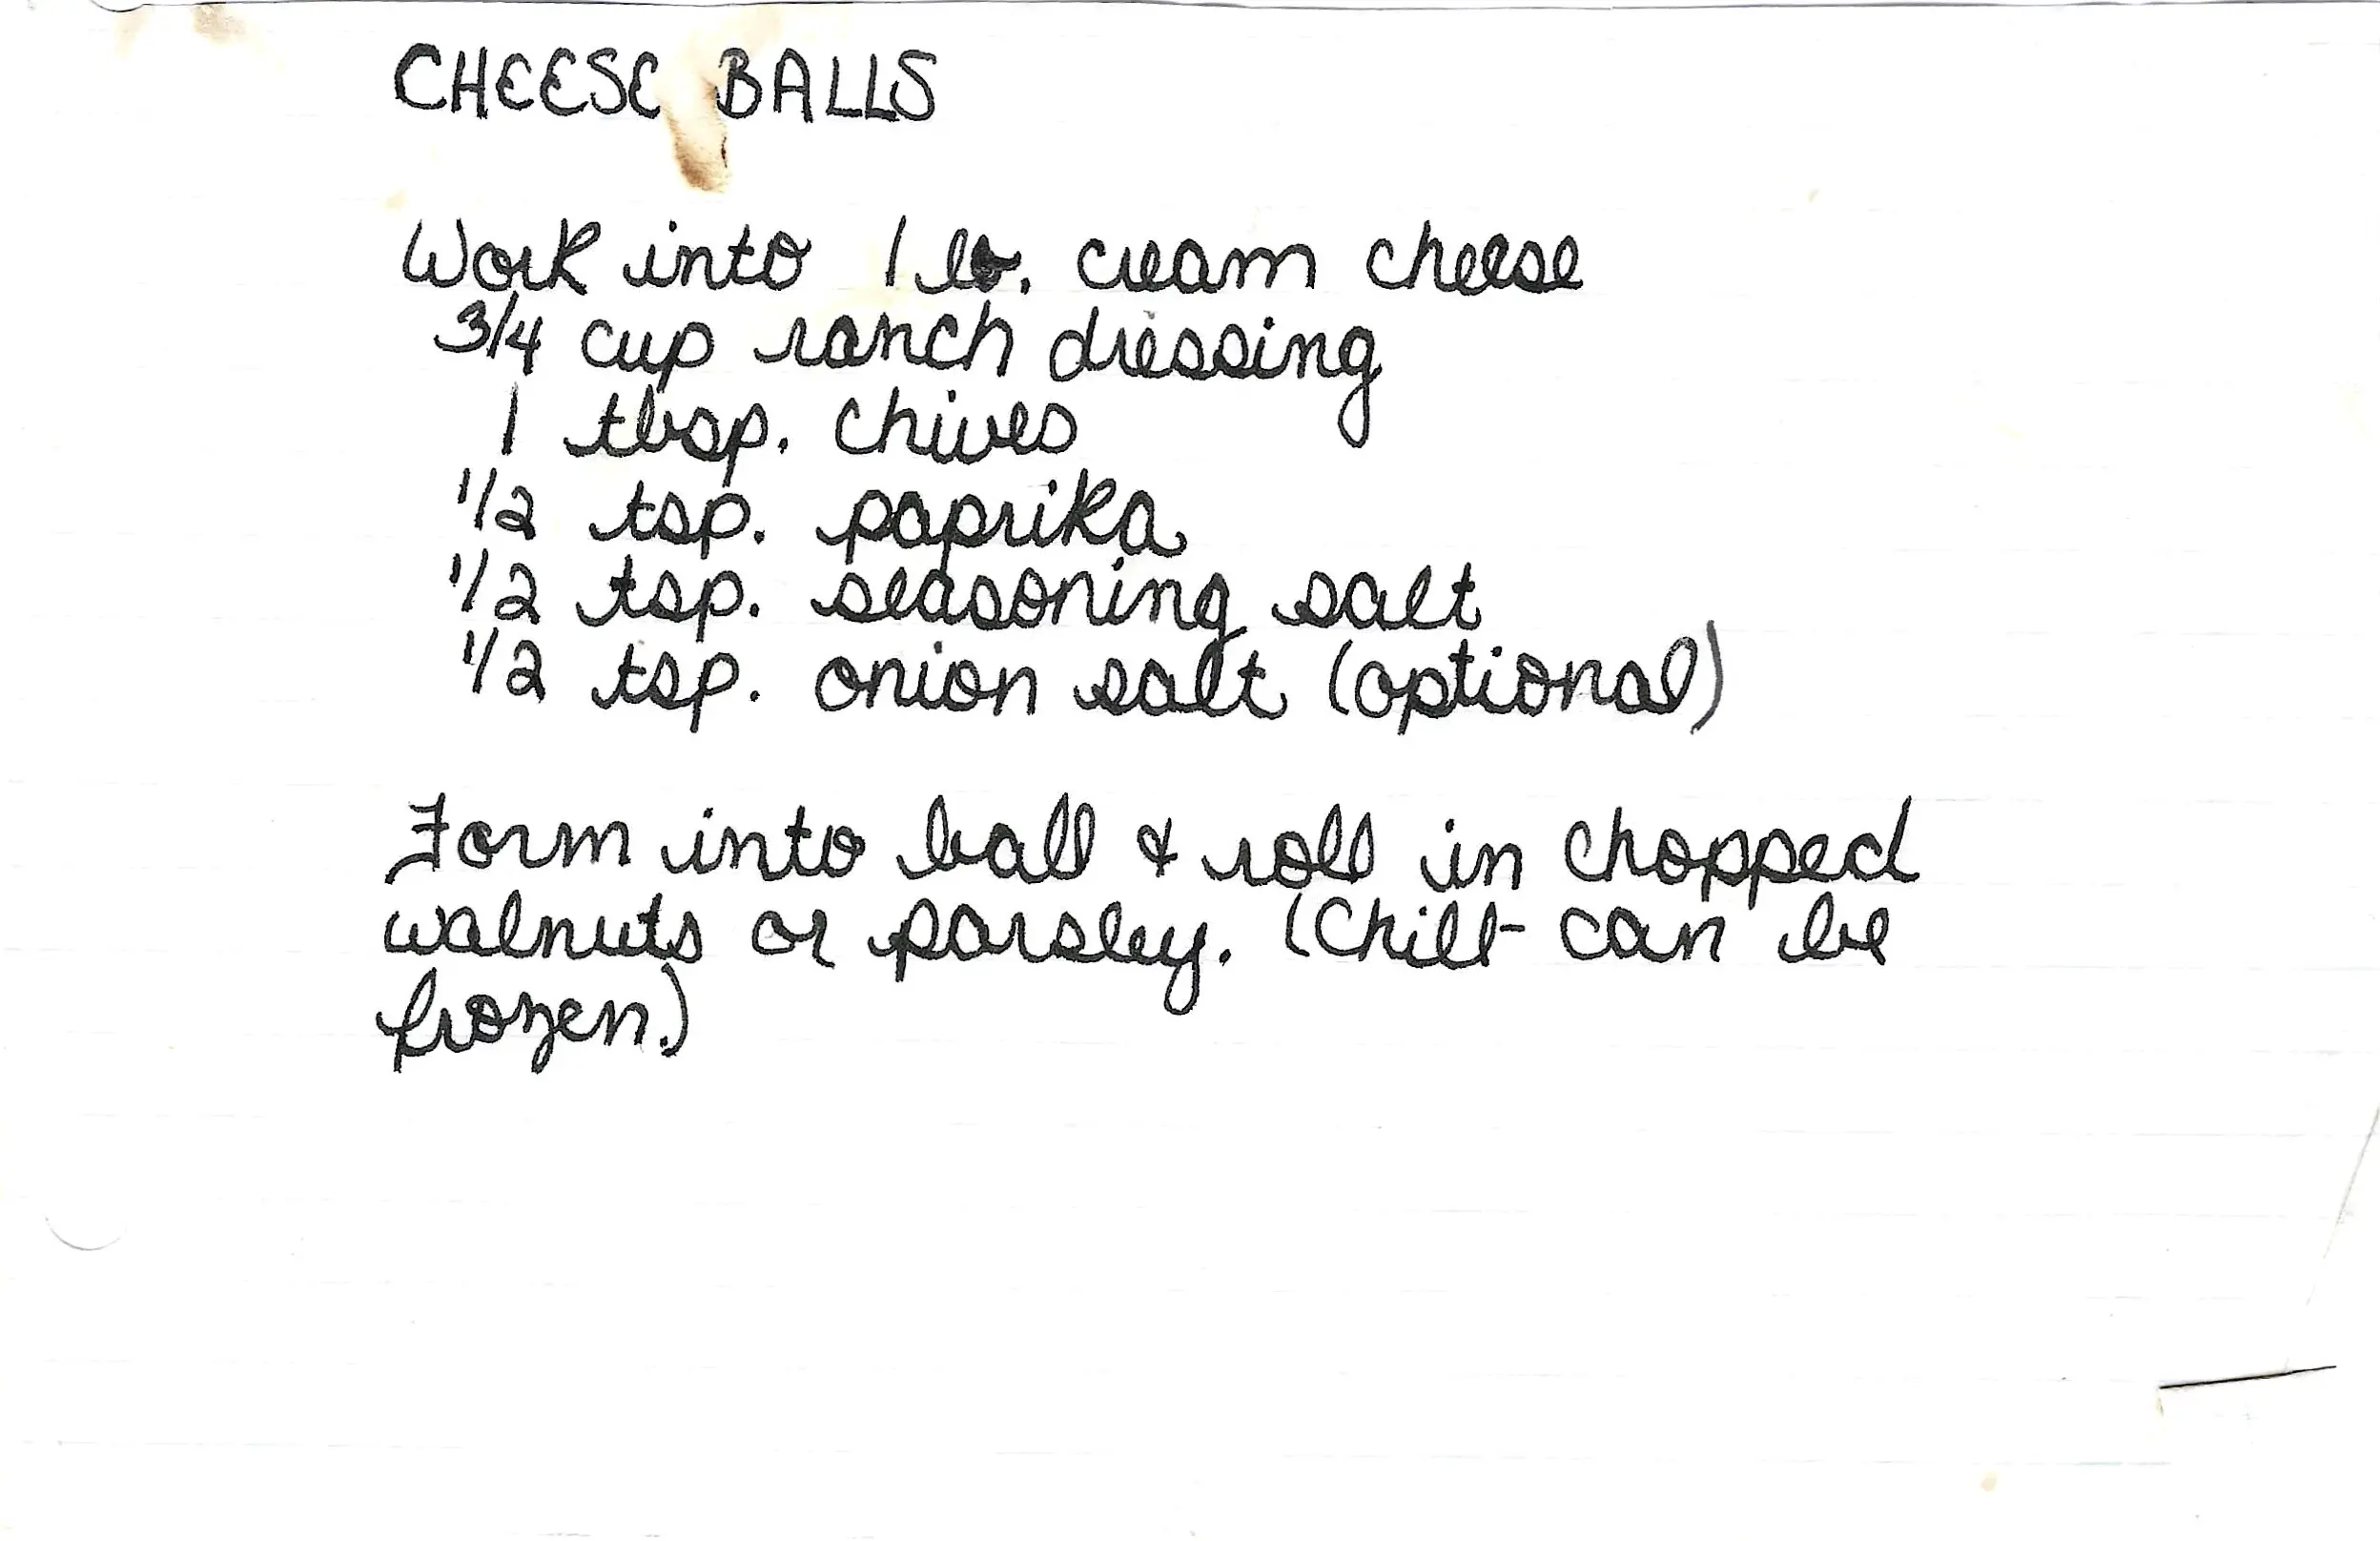 CHEESE BALLS
Work into 1 lb. cream cheese
3/4 cup ranch dressing
1 tbsp. chives
1/2 tsp. paprika
1/2 tsp. seasoning salt
1/2 tsp. onion salt (optional)
Form into ball & roll in chopped
walnuts or parsley. (Chill - can be
frozen.)